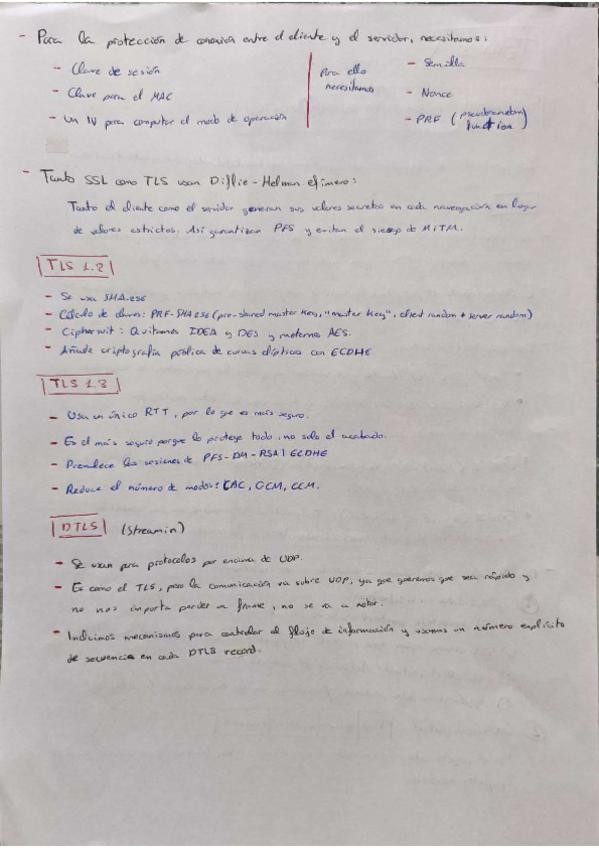 - Para la protección de conexión entre el cliente y el servidor, necesitamos:
- Clave de sesión
- Clave para el MAC
- Un IV para computar el modo de operación
Para ello
necesitamos
- Semilla
- Nonce
- PRF (pseudorandom
function)
- Tanto SSL como TLS usan Diffie-Helman efímero:
Tanto el cliente como el servidor generan sus valores secretos en cada navegación en lugar
de valores estrictos. Así garantizan PFS y evitan el riesgo de MiTM.
TLS 1.2
- Se usa SHA-256
- Cálculo de claves: PRF-SHA256 (pre-shared master key, "master key", client random + server random)
- Ciphersuit: Quitamos IDEA y DES y metemos AES.
- Añade criptografía pública de curvas elípticas con ECDHE
TLS 1.3
- Usa un único RTT, por lo que es más seguro.
- Es el más seguro porque lo protege todo, no solo el acabado.
- Prevalece las sesiones de PFS-DH-RSA | ECDHE
- Reduce el número de modos: CAC, GCM, CCM.
DTLS (Streamin)
- Se usan para protocolos por encima de UDP.
- Es como el TLS, pero la comunicación va sobre UDP, ya que queremos que sea rápido y
no nos importa perder un frame, no se va a notar.
- Incluimos mecanismos para controlar el flujo de información y usamos un número explícito
de secuencia en cada DTLS record.